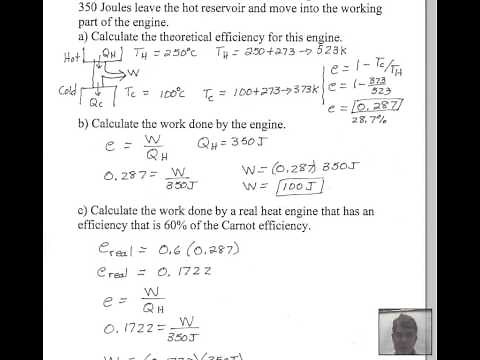 350 Joules leave the hot reservoir and move into the working
part of the engine.
a) Calculate the theoretical efficiency for this engine.
Hot QH TH = 250°C TH = 250+273 → 523K
W
Cold Qc Tc = 100°C Tc = 100+273 → 373K
e = 1 - Tc/TH
e = 1 - 373/523
e = 0.287
28.7%
b) Calculate the work done by the engine.
e = W/QH QH = 350J
0.287 = W/350J W = (0.287) 350J
W = 100J
c) Calculate the work done by a real heat engine that has an
efficiency that is 60% of the Carnot efficiency.
ereal = 0.6 (0.287)
ereal = 0.1722
e = W/QH
0.1722 = W/350J
W = (0.1722)(350J)